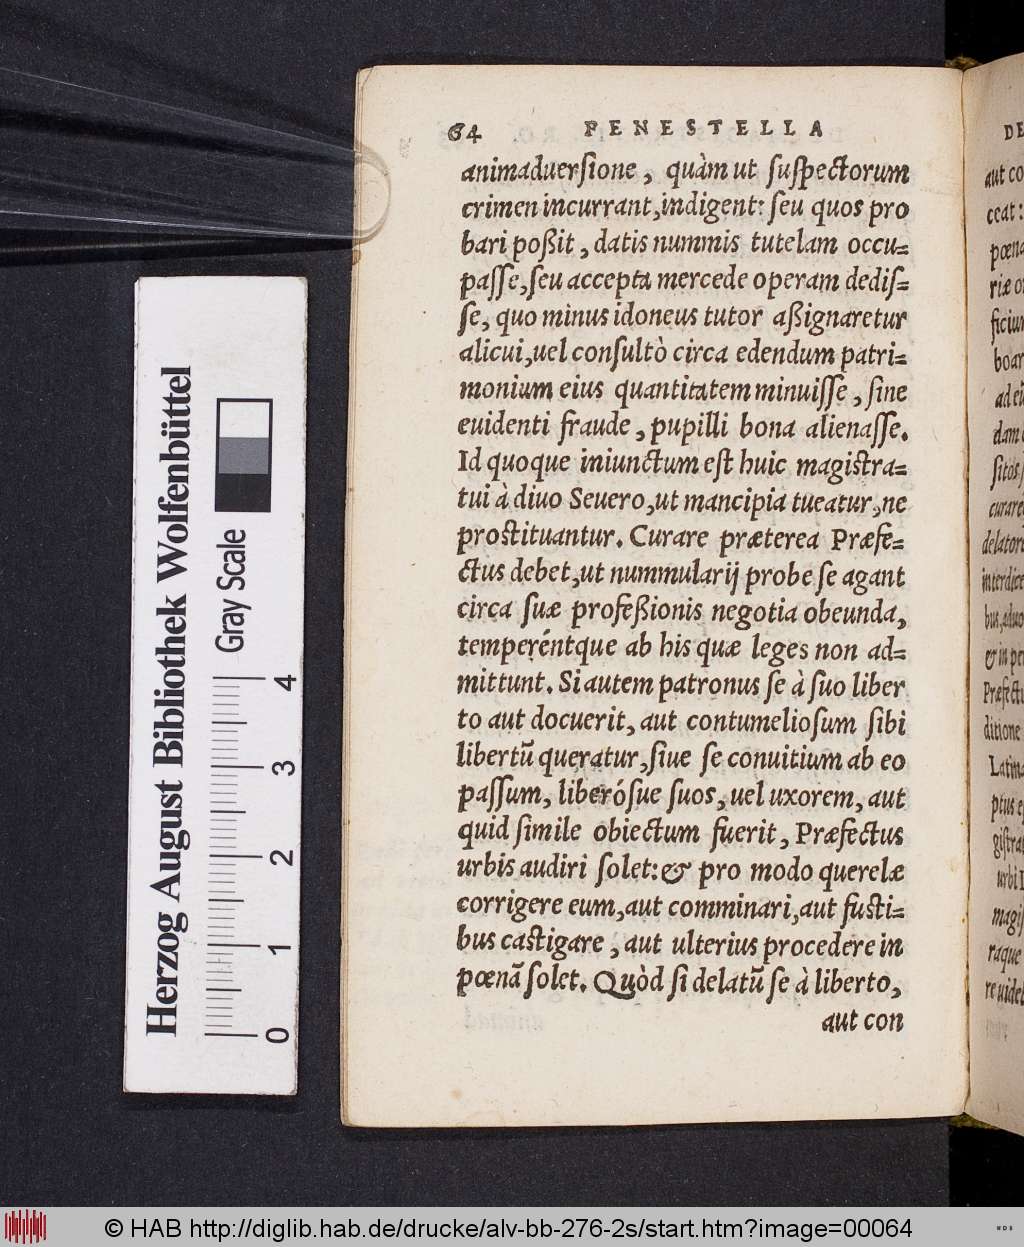 64 FENESTELLA
animaduerſione, quàm ut ſuſpectorum
crimen incurrant, indigent: ſeu quos pro
bari poßit, datis nummis tutelam occu-
paſſe, ſeu accepta mercede operam dediſ-
ſe, quo minus idoneus tutor aßignaretur
alicui, uel conſultò circa edendum patri-
monium eius quantitatem minuiſſe, ſine
euidenti fraude, pupilli bona alienaſſe.
Id quoque iniunctum eſt huic magiſtra-
tui à diuo Seuero, ut mancipia tueatur, ne
proſtituantur. Curare præterea Præfe-
ctus debet, ut nummularij probe ſe agant
circa ſuæ profeßionis negotia obeunda,
temperéntque ab his quæ leges non ad-
mittunt. Si autem patronus ſe à ſuo liber
to aut docuerit, aut contumelioſum ſibi
libertũ queratur, ſiue ſe conuitium ab eo
paſſum, liberóſue ſuos, uel uxorem, aut
quid ſimile obiectum fuerit, Præfectus
urbis audiri ſolet: & pro modo querelæ
corrigere eum, aut comminari, aut fuſti-
bus caſtigare, aut ulterius procedere in
pœnã ſolet. Quòd ſi delatũ ſe à liberto,
aut con
DE
aut co
ceat:
pœna
riæ o
ficium
boar
ad eũ
dam
ſitos
curare
delatore
interdice
bus, aduo
& in pe
Præfectu
ditione
Latina
ptus e
giſtra
urbi
magi
raque
re uidel
Herzog August Bibliothek Wolfenbüttel
Gray Scale
0 1 2 3 4
© HAB http://diglib.hab.de/drucke/alv-bb-276-2s/start.htm?image=00064
WDB